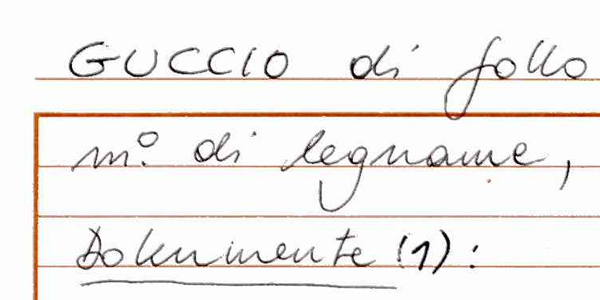 GUCCIO di follo
m.° di legname,
Dokumente (1):